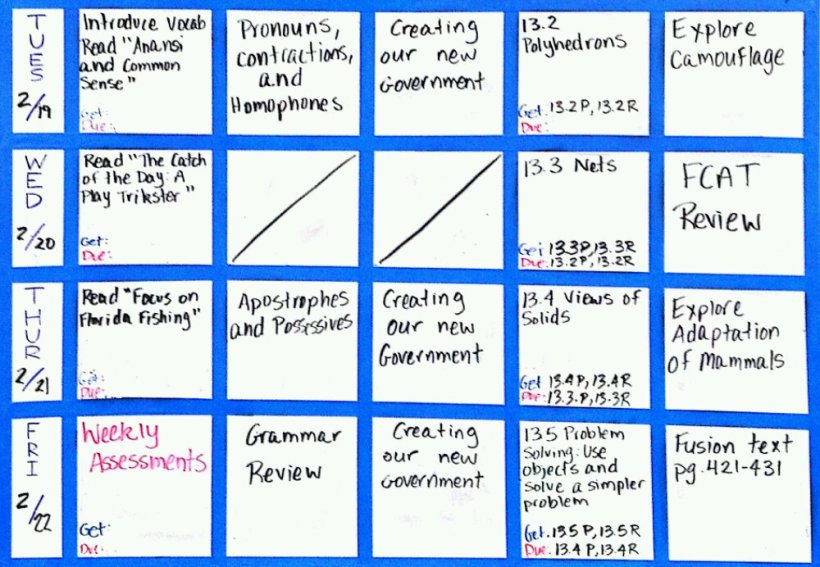 TUES
2/19
Introduce Vocab
Read "Anansi
and Common
Sense"
Get:
Due:
Pronouns,
contractions,
and
Homophones
Creating
our new
Government
13.2
Polyhedrons
Get: 13.2P, 13.2R
Due:
Explore
Camouflage
WED
2/20
Read "The Catch
of the Day: A
Play Trikster"
Get:
Due:
13.3 Nets
Get: 13.3P, 13.3R
Due: 13.2P, 13.2R
FCAT
Review
THUR
2/21
Read "Focus on
Florida Fishing"
Get:
Due:
Apostrophes
and Possessives
Creating
our new
Government
13.4 Views of
Solids
Get 13.4P, 13.4R
Due: 13.3.P, 13.3R
Explore
Adaptation
of Mammals
FRI
2/22
Weekly
Assessments
Get:
Due:
Grammar
Review
Creating
our new
Government
13.5 Problem
Solving: Use
objects and
solve a simpler
problem
Get: 13.5P, 13.5R
Due: 13.4P, 13.4R
Fusion text
pg. 421-431